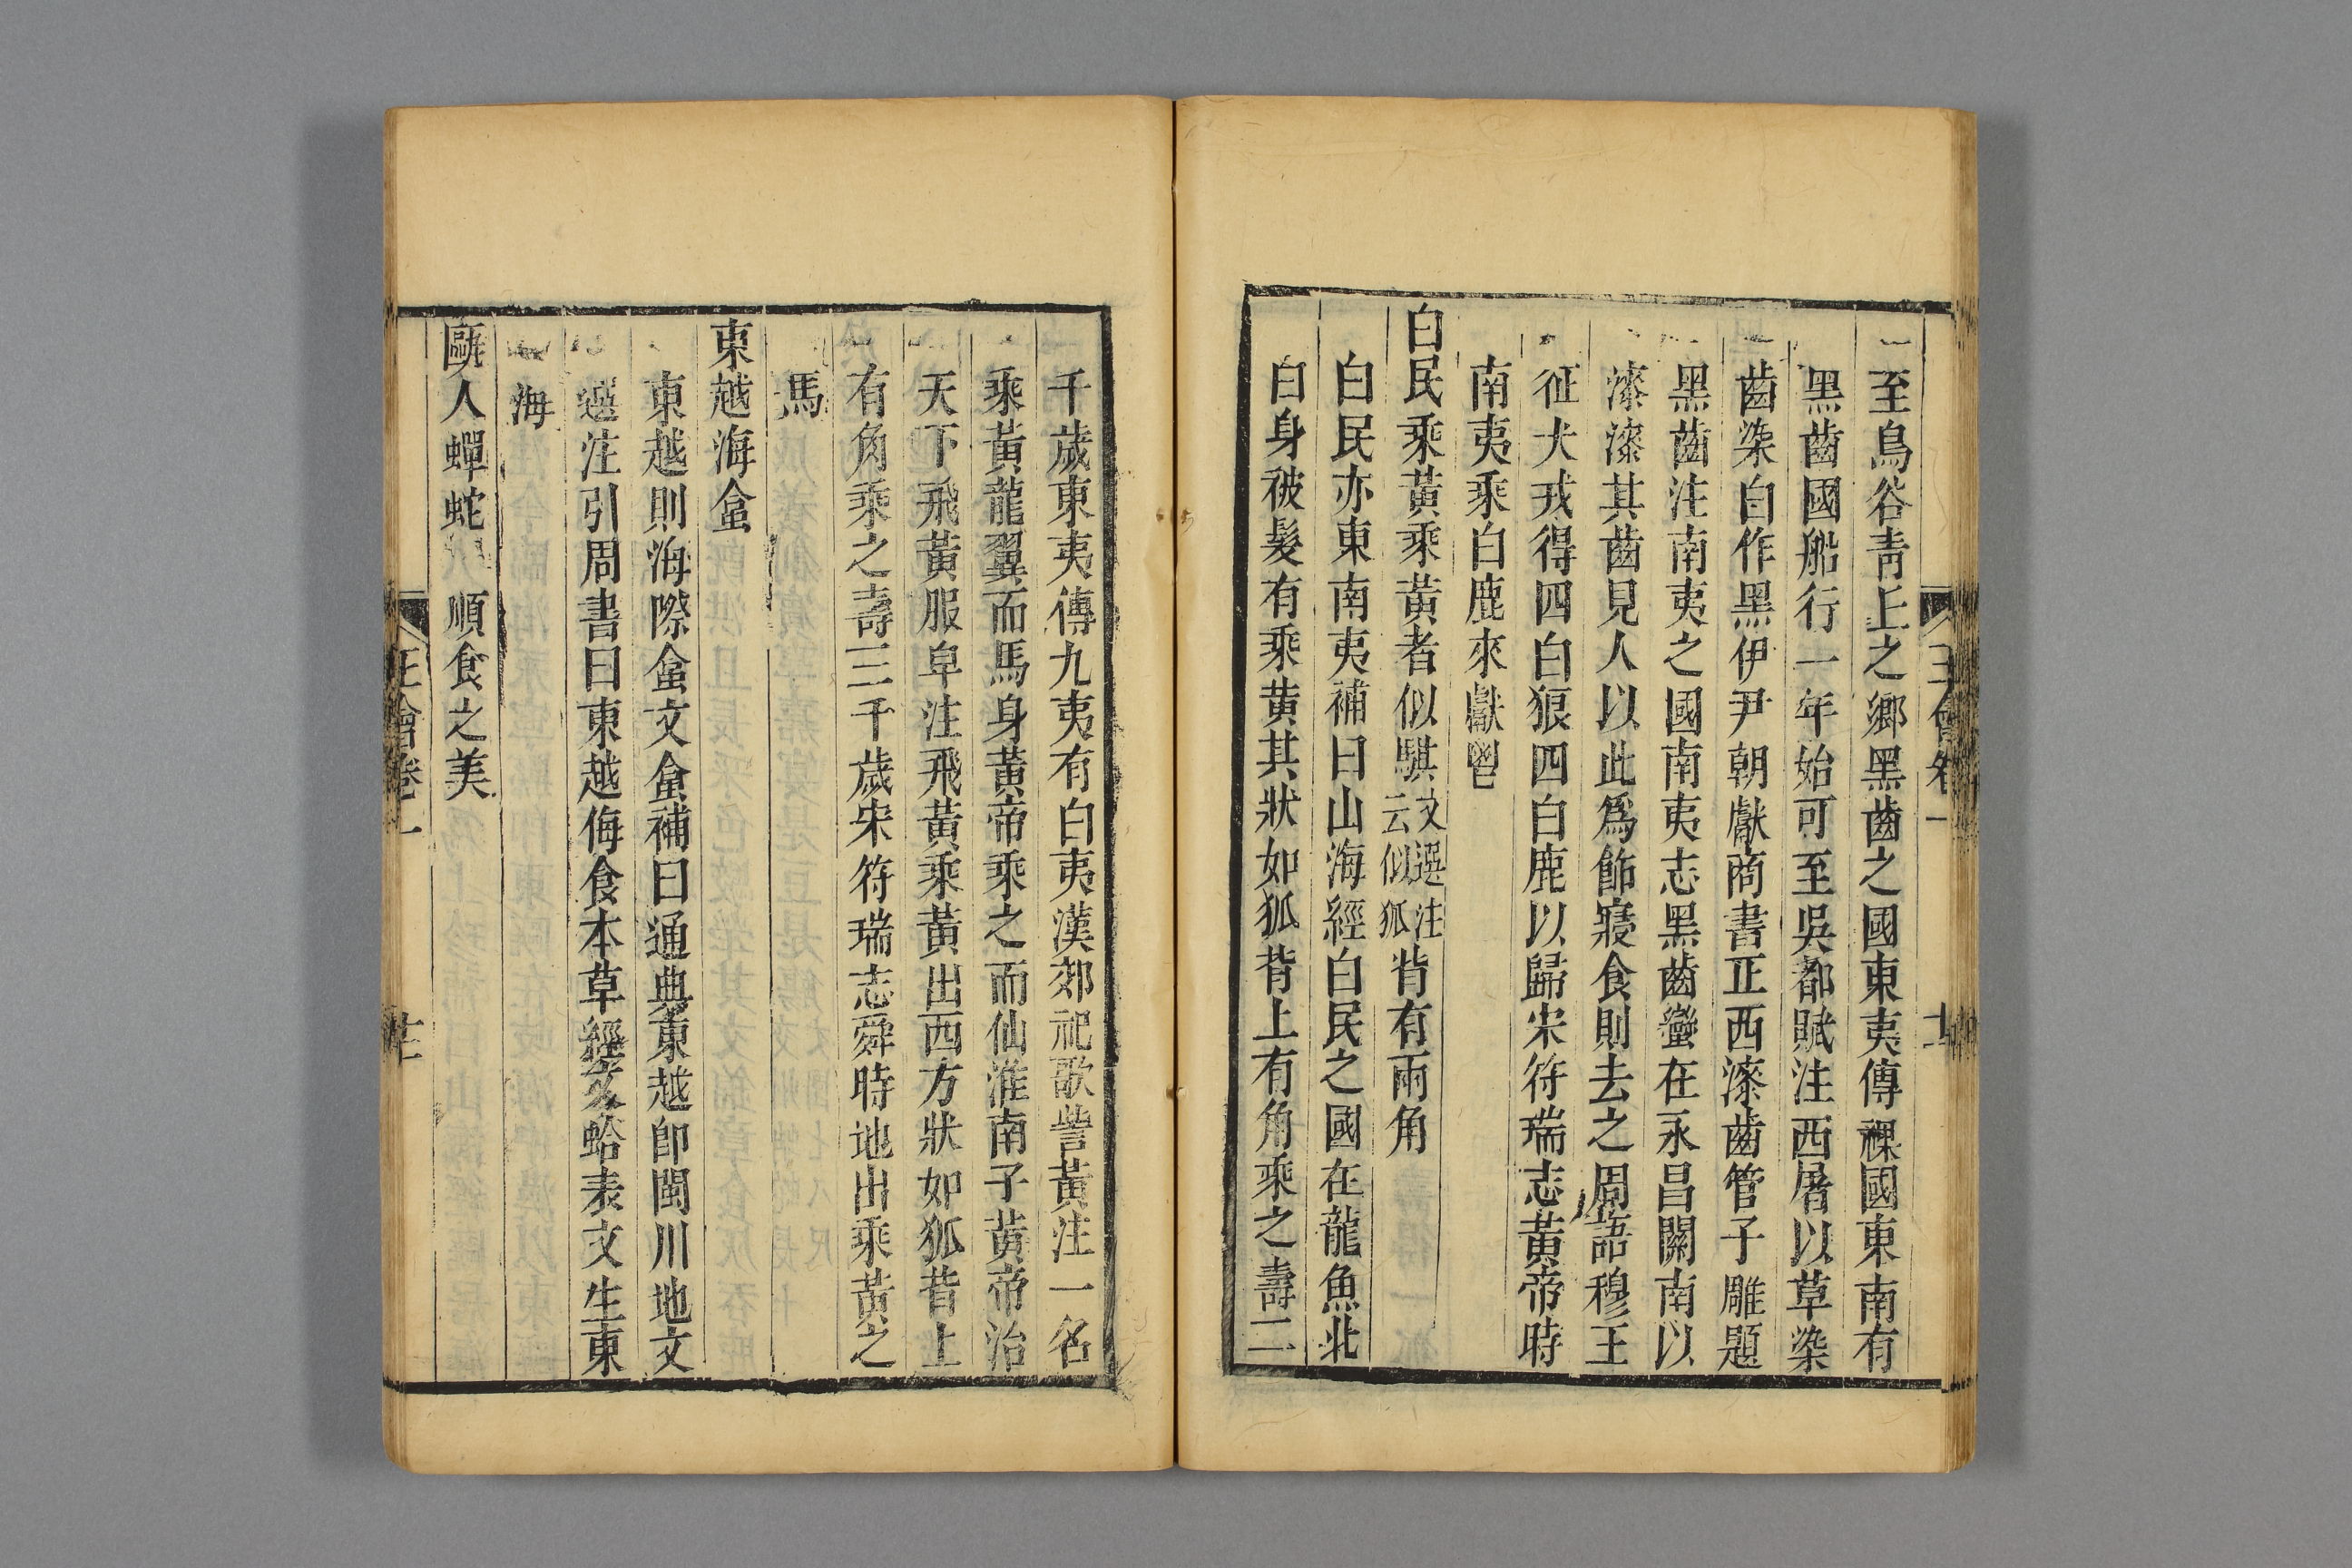 至鳥谷青丘之鄉黑齒之國東夷傳裸國東南有
黑齒國船行一年始可至吳都賦注西屠以草染
齒染白作黑伊尹朝獻商書正西漆齒管子雕題
黑齒注南夷之國南夷志黑齒蠻在永昌關南以
漆漆其齒見人以此爲飾寢食則去之周語穆王
征犬戎得四白狼四白鹿以歸宋符瑞志黃帝時
南夷乘白鹿來獻鬯
白民乘黃乘黃者似騏文選注云似狐背有兩角
白民亦東南夷補曰山海經白民之國在龍魚北
白身被髮有乘黃其狀如狐背上有角乘之壽二
千歲東夷傳九夷有白夷漢郊祀歌訾黃注一名
乘黃龍翼而馬身黃帝乘之而仙淮南子黃帝治
天下飛黃服皁注飛黃乘黃出西方狀如狐背上
有角乘之壽三千歲宋符瑞志舜時地出乘黃之
馬
東越海蛤
東越則海際蛤文蛤補曰通典東越卽閩川地文
選注引周書曰東越侮食本草經文蛤表文生東
海
歐人蟬蛇 順食之美
王會卷一